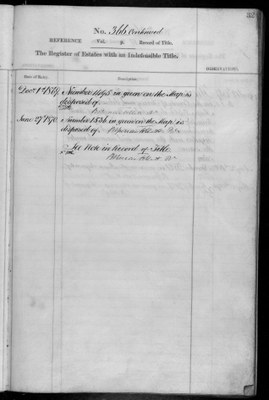 No. 366 Continued
REFERENCE Vol. Record of Title.
The Register of Estates with an Indefeasible Title.
Date of Entry. Description.
Dec. 1st 1869 Number 1695 in green on the Map is
disposed of.
June 27th 1870 Number 1836 in green on the Map is
disposed of.
See Note in Record of Title